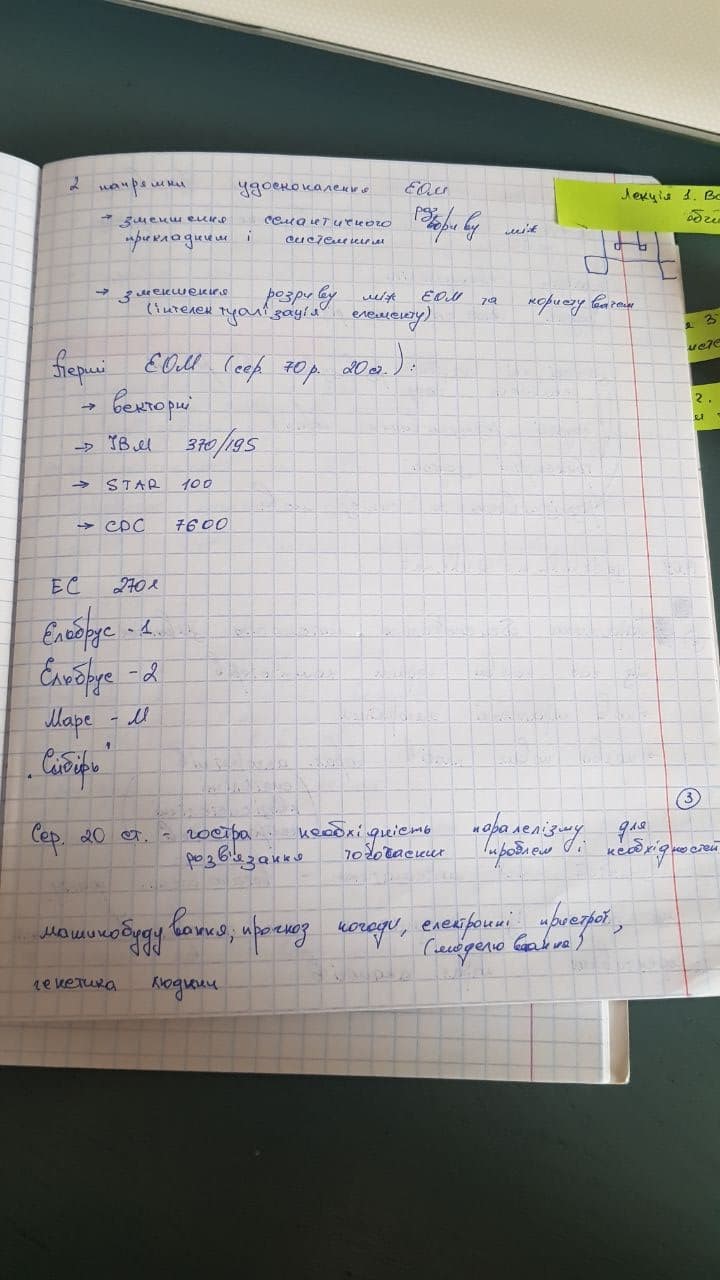 2 напрямки удосконалення ЕОМ
→ зменшення семантичного розриву між
прикладним і системним
→ зменшення розриву між ЕОМ та користувачем
(інтелектуалізація елементу)
Перші ЕОМ (сер. 70 р. 20 ст.):
→ векторні
→ IBM 370/195
→ STAR 100
→ CDC 7600
ЕС 270
Ельбрус - 1
Ельбрус - 2
Марс - М
"Сібірь"
③
Сер. 20 ст. - гостра необхідність паралелізму для
розв'язання тогочасних проблем і необхідностей
машинобудування, прогноз погоди, електронні пристрої,
(моделювання)
генетика людини
Лекція 1. Вс
обчи